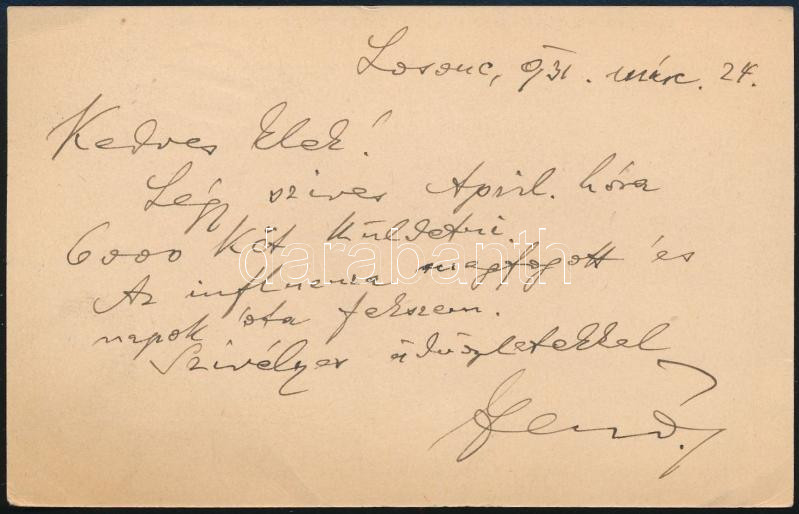 Losonc, 931. márc. 24.
Kedves Elek!
Légy szives April. hóra
6000 Kčt küldetni.
Az influenza magfogott és
napok óta fekszem.
Szivélyes üdvözletekkel
Jenő.
darabanth